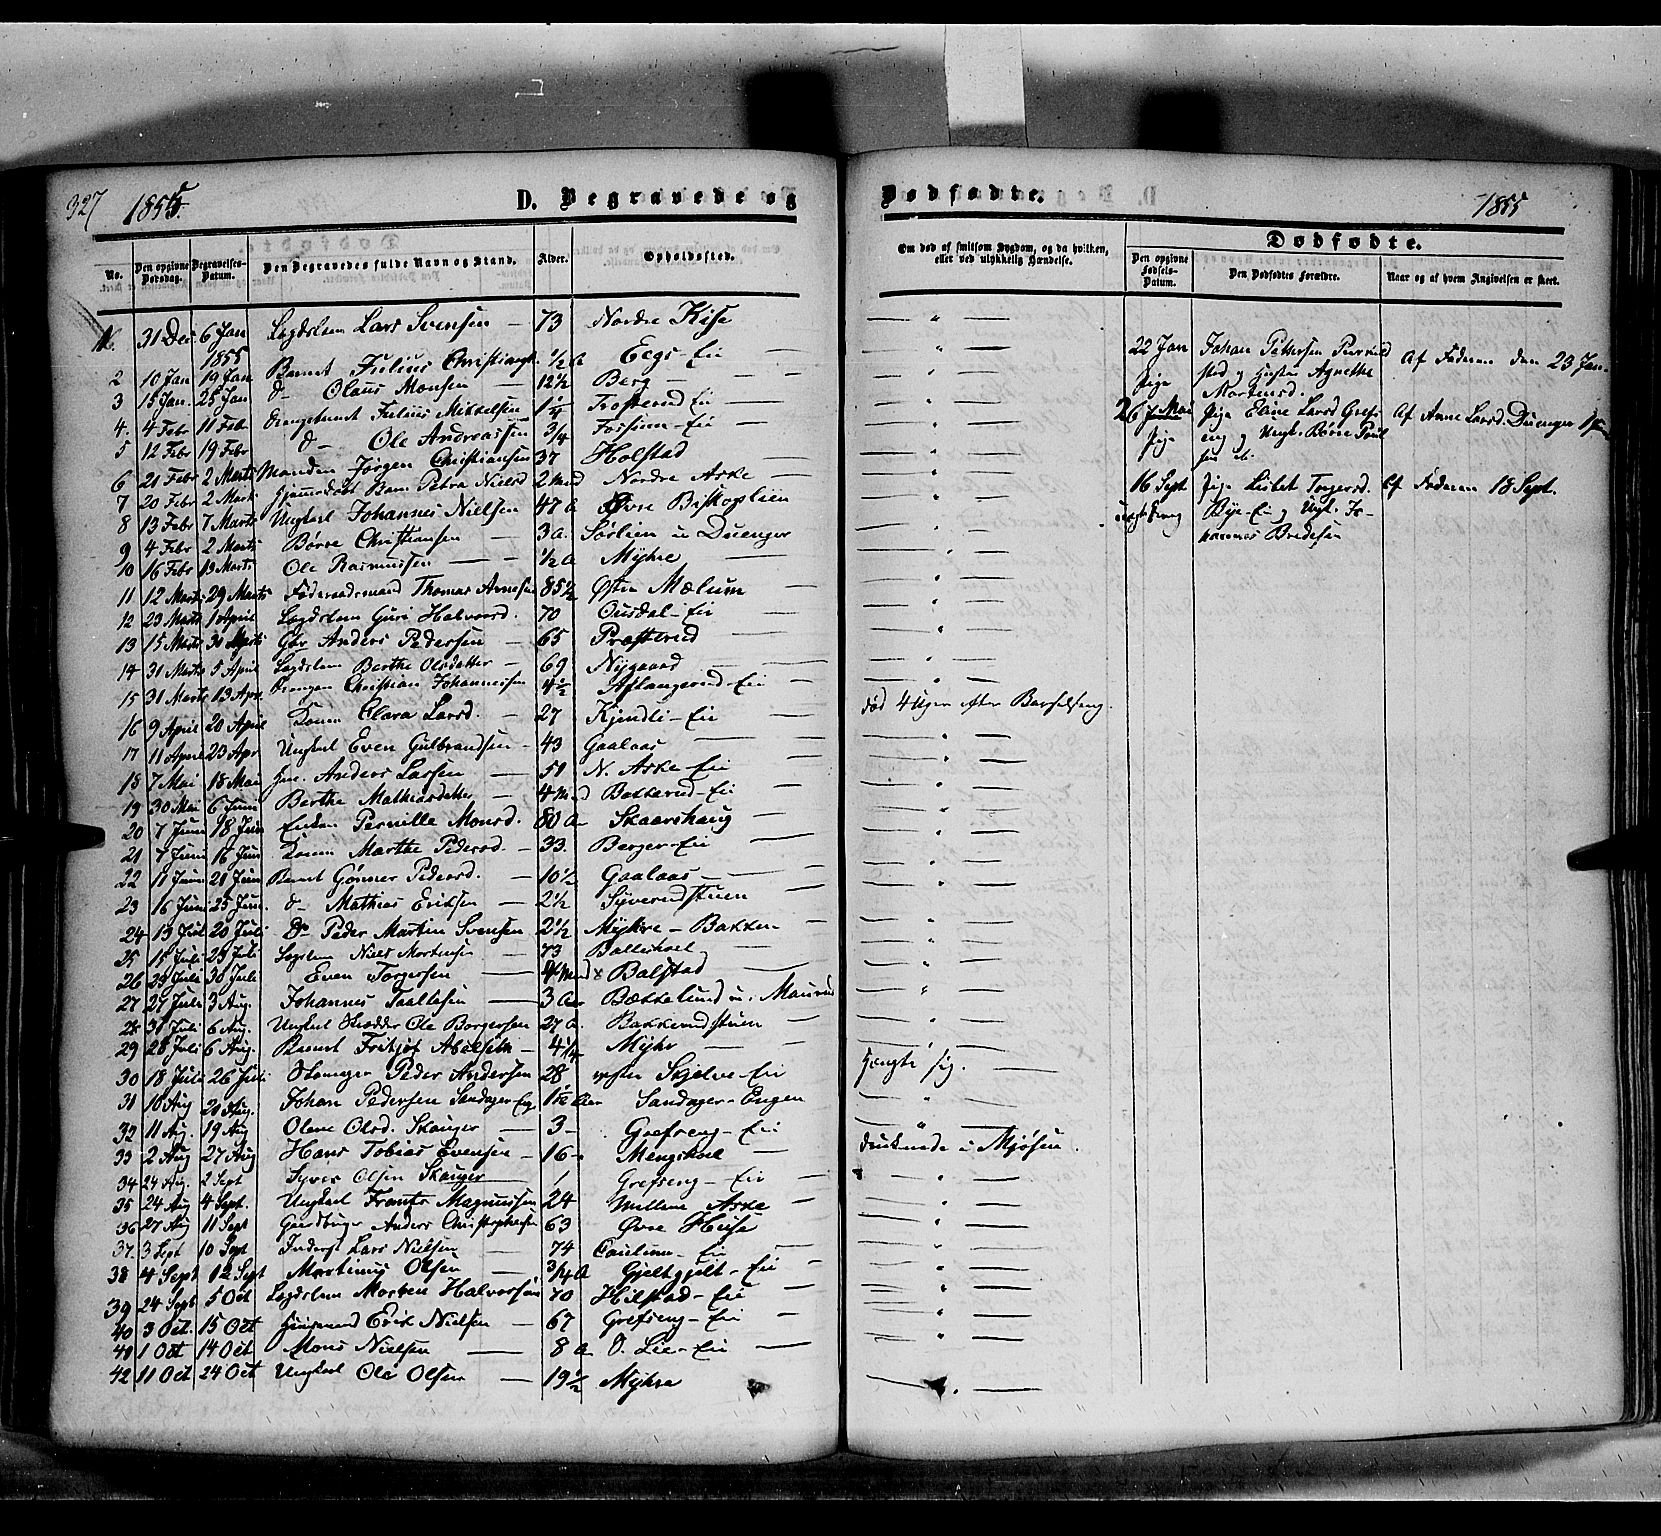 327 1855. D. Begravede og Dødfødte. 1855
No. Den opgivne Dødsdag. Begravelses-Datum. Den Begravedes fulde Navn og Stand. Alder. Opholdssted. Om død af smitsom Sygdom, og da hvilken, eller ved ulykkelig Hændelse. Dødfødte.
Den opgivne Fødsels-Datum. Den Dødfødtes Forældre. Naar og af hvem Angivelsen er skeet.
1. 31 Dec 6 Jan Lægdslem Lars Svensen 73 Nordre Kise
1855
2 10 Jan 19 Jan Barnet Julius Christians 1/2 A Eegs-Eie
3 15 Jan. 25 Jan d- Olaus Monsen 12 1/2 Berg
4. 4 Febr 11 Febr Drengebarnet Julius Mikkelsen 1 1/4 Trosterud Eie
5 12 Febr 19 Febr d- Ole Andreassen 3/4 Fossum-Eie
6 21 Febr 2 Marts Manden Jørgen Christiansen 37 Holstad
7 20 Febr 2 Mark. Hjemmedøbt Barn Petra Nielsd 2 Mnd Nordre Aske
8 13 Febr 7 Marts Ungkarl Johannes Nielsen 47 A Øvre Biskoplien
9 4 Febr 2 Marts Børre Christiansen 3 a. Sørlien u Duenger
10 16 Febr 13 Marts Ole Rasmussen 1/2 A Myhre
11 12 Marts 29 Marts Føderaadsmand Thomas Arnesen 85 1/2 Østre Mælum
12 23 Marts 1 April Lægdslem Guri Halvorsd. 70 Ousdal-Eie
13 15 Marts 30 Marts Gbr Anders Pedersen 65 Præsterud
14 31 Marts 5 April Lægdslem Berthe Olsdatter 69 Nygaard
15 31 Marts 13 Apr. Drengen Christian Johannessen 4 1/2 Aflangerud-Eie
16 9 April 20 April Konen Clara Larsd. 27 Kjendli-Eie død 4 Uger efter Barselseng.
17 11 April 23 Apr Ungkarl Even Gulbrandsen 43 Gaalaas
18 7 Mai 18 Mai Hm. Anders Larsen 51 N. Aske-Eie
19 30 Mai 6 Juni Berthe Mathiasdatter 4 Mnd Bakkerud-Eie
20 7 Juni 18 Juni Enken Pernille Monsd. 80 A Skaarshaug
21 7 Juni 16 Juni Konen Marthe Pedersd. 33. Berger-Eie
22 11 Juni 21 Juni Barnet Gønner Pedersd. 10 1/2 Gaalaas
23 16 Juni 25 Juni. d- Mathias Eriksen 2 1/2 Syverudstuen
24 13 Juli 20 Juli Do Peder Martin Svensen 2 1/2 Myhre-Bakken
25 15 Juli 23 Juli Lægslem Niels Mortensen 73 Ballishoel
26 23 Juli 30 Juli Even Torgersen 4 Mnd Balstad
27 27 Juli 3 Aug. Johannes Taaltesen 3 Aar Bækkelund u. Maurud
28 31 Juli 6 Aug. Ungkarl Skrædder Ole Borgersen 27 a. Bakkerudstuen
29 28 Juli 6 Aug. Barnet Fritjof Abelseth 4 1/4 Myhr
30 18 Juli 26 Juli Peder Andersen 28 østre Skjelve-Eie hængte sig.
31 10 Aug 20 Aug. Johan Pedersen Sandager Eng. Sandager-Engen
32 11 Aug. 19 Aug Olene Olsd. Skanger 3 Grefseng-Eie
33 2 Aug 27 Aug Hans Tobias Evensen 16 Mengshoel druknede i Mjøsen.
34 24 Aug. 2 Sept Syver Olsen Skanger 1 Grefseng-Eie
35 24 Aug 4 Sept. Ungkarl Frants Magnussen 24 Mellem Aske
36 27 Aug 11 Sept Gaardbruger Anders Christophersen 63 Øvre Huse
37. 3 Sept 10 Sept Inderst Lars Nielsen 74 Eie
38 4 Sept 12 Sept Martinus Olsen 3/4 A Eie
39 24 Sept 5 Oct Lægdslem Morten Halvorsen 70 Hilstad-Eie
40 3 Oct. 15 Oct Huusmand Erik Nielsen 67 Grefseng-Eie
41 1 Oct 14 Oct Mons Nielsen 8 A O. Lie-Eie
42 11 Oct 24 Oct Ungkarl Ole Olsen 19 1/2 Myhre
22 Jan Pige Johan Pettersen
stad og Hustru Agnethe
Mortensd.
Af Faderen den 23 Jan.
26 Mai Pige Pige Eline Larsd Gref-
eng og Ungk. Børre Poul
sen
Af Anne Larsd. Duenger
16 Sept Pige Lisbet Torgersd.
Bye-Eie og Ungk. Jo-
hannes Bredesen
Af Faderen 18 Sept.